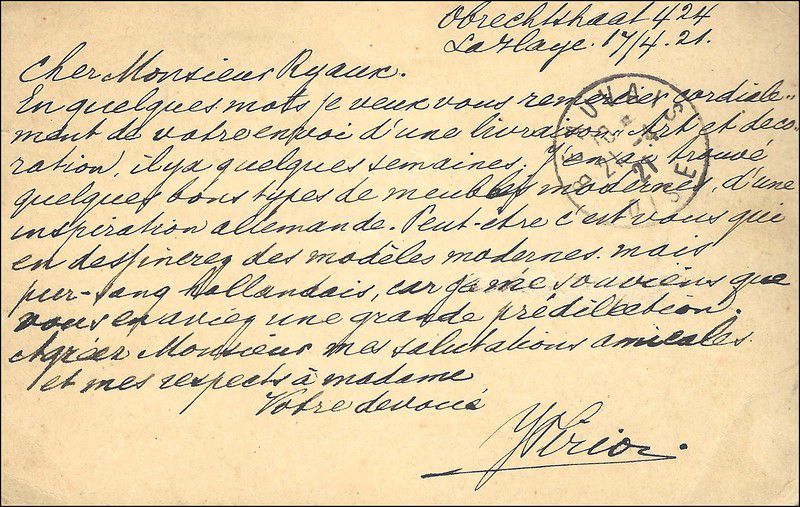 Obrechtstraat 424
La Haye. 17/4. 21.
Cher Monsieur Ryaux.
En quelques mots je veux vous remercier cordiale=
ment de votre envoi d'une livraison Art et deco-
ration, il y a quelques semaines. J'en ai trouvé
quelques bons types de meubles modernes, d'une
inspiration allemande. Peut-être c'est vous qui
en dessinerez des modèles modernes. mais
pur-sang hollandais, car je me souviens que
vous en aviez une grande prédilection.
Agréer Monsieur mes salutations amicales
et mes respects à madame
Votre devoué
BEUVAIS
OISE
21